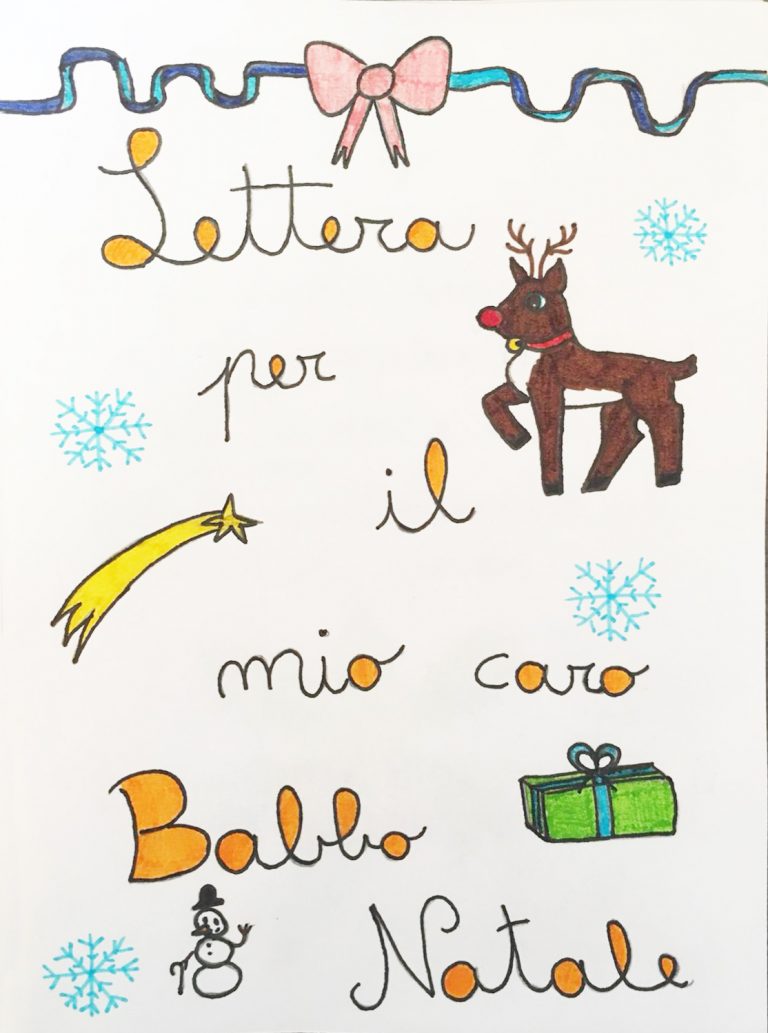 Lettera
per
il
mio caro
Babbo
Natale